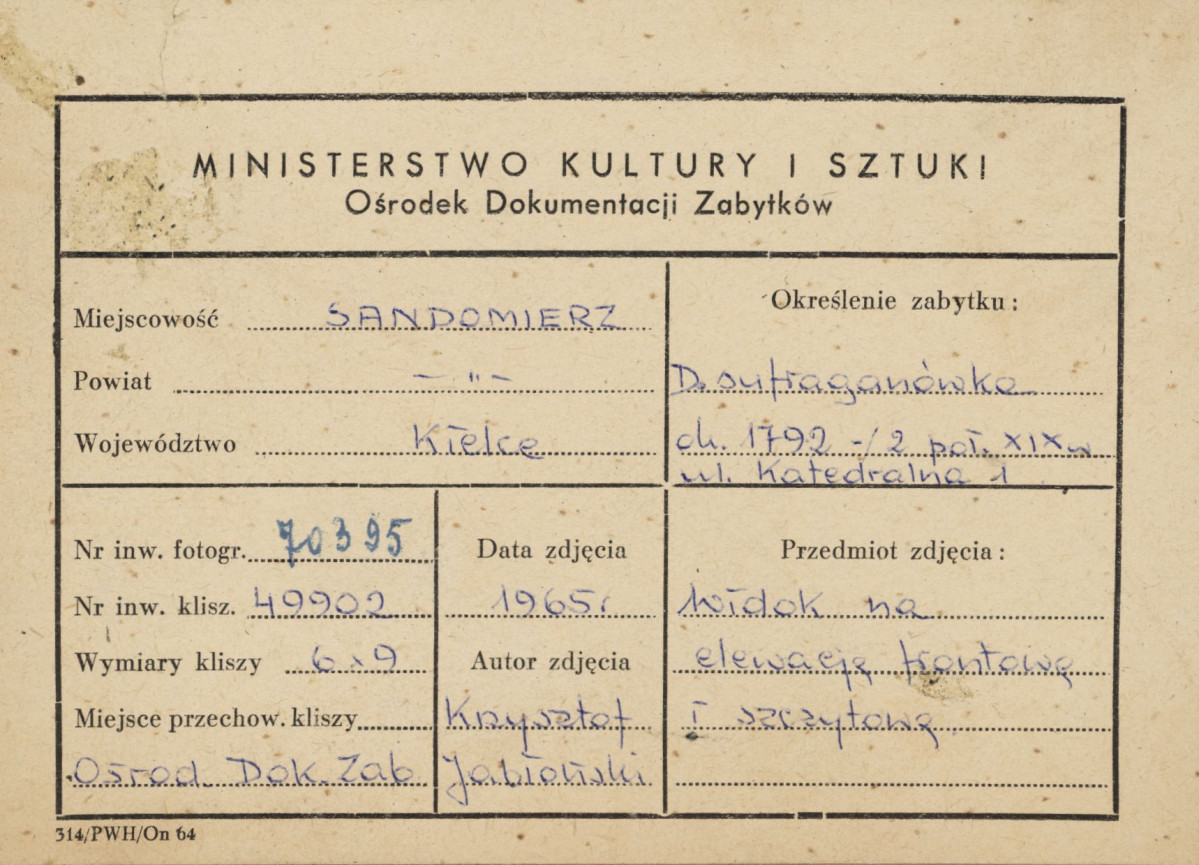 MINISTERSTWO KULTURY I SZTUKI
Ośrodek Dokumentacji Zabytków
Miejscowość SANDOMIERZ
Powiat — „ —
Województwo Kielce
Określenie zabytku:
D. sufraganówka
ok. 1792 -/2 poł. XIX w
ul. Katedralna 1
Nr inw. fotogr. 70395
Nr inw. klisz. 49902
Wymiary kliszy 6x9
Miejsce przechow. kliszy
Ośrod. Dok. Zab
Data zdjęcia
1965r
Autor zdjęcia
Krzysztof
Jabłoński
Przedmiot zdjęcia:
Widok na
elewację frontową
i szczytową
314/PWH/On 64